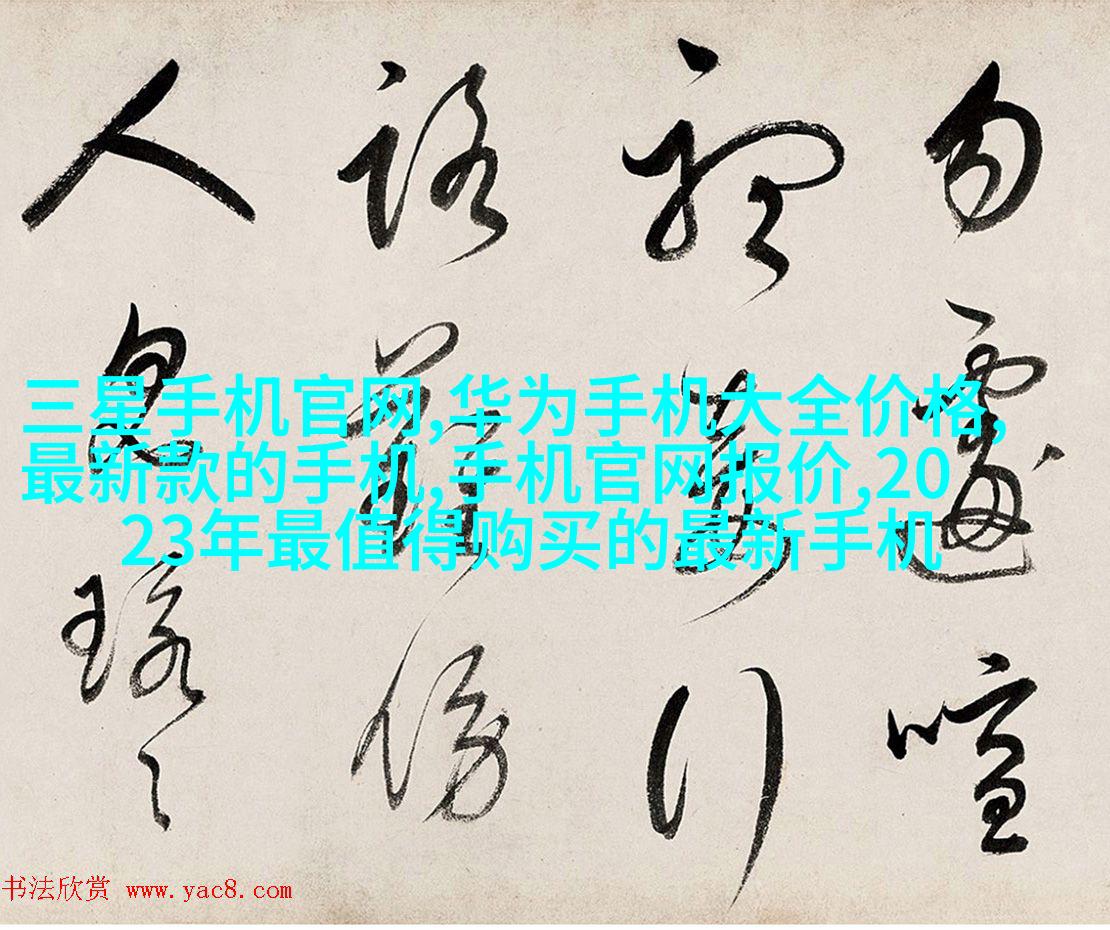 勿 喧
行
路難傍
人
三星手机官网,华为手机大全价格,
最新款的手机,手机官网报价,20
23年最值得购买的最新手机
书法欣赏 www.yac8.com